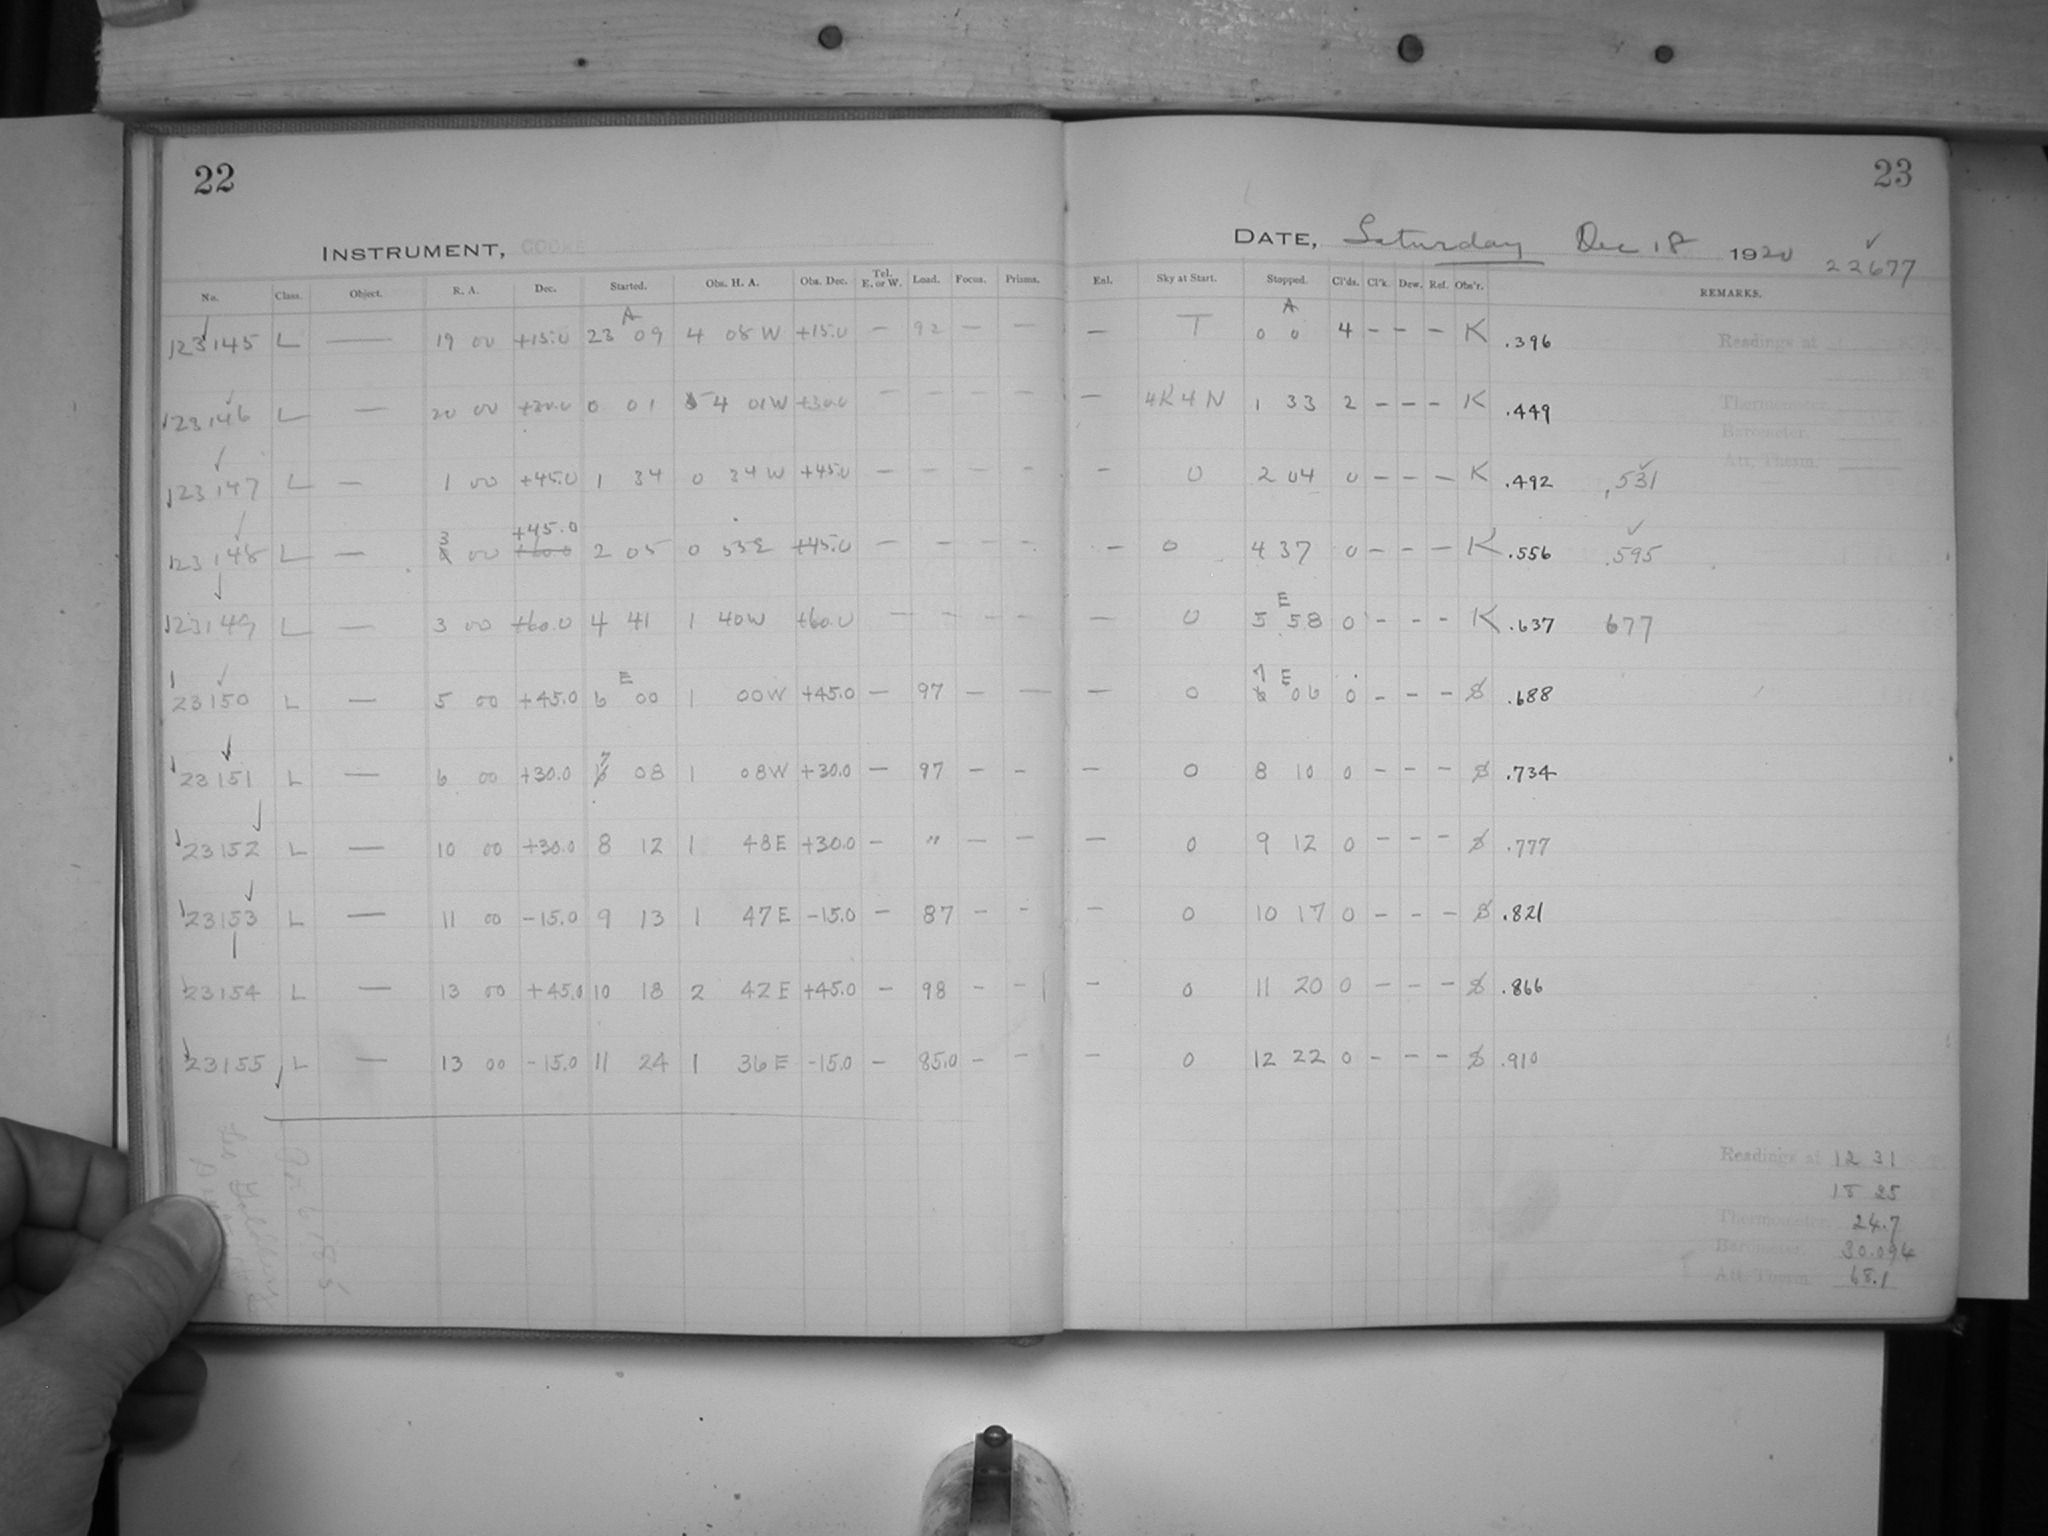 22
INSTRUMENT, COOKE
No. Class. Object. R. A. Dec. Started. Obs. H. A. Obs. Dec. Tel. E. or W. Load. Focus. Prisms.
123145 L — 19 00 +15.0 23 A 09 4 08 W +15.0 — 92 — —
123146 L — 20 00 +30.0 0 01 4 01 W +30.0 — — — —
123147 L — 1 00 +45.0 1 34 0 34 W +45.0 — — — —
123148 L — 3 00 +45.0 +60.0 2 05 0 53 E +45.0 — — — —
123149 L — 3 00 +60.0 4 41 1 40 W +60.0 — — — —
123150 L — 5 00 +45.0 6 E 00 1 00 W +45.0 — 97 — —
123151 L — 6 00 +30.0 7 08 1 08 W +30.0 — 97 — —
123152 L — 10 00 +30.0 8 12 1 48 E +30.0 — " — —
123153 L — 11 00 -15.0 9 13 1 47 E -15.0 — 87 — —
123154 L — 13 00 +45.0 10 18 2 42 E +45.0 — 98 — —
123155 L — 13 00 -15.0 11 24 1 36 E -15.0 — 85.0 — —
23
DATE, Saturday Dec 18 1920
22677
Enl. Sky at Start. Stopped. Cl'ds. Cl'k. Dew. Ref. Obs'r. REMARKS.
— T 0 A 0 4 — — — K .396
— 4K4N 1 33 2 — — — K .449
— 0 2 04 0 — — — K .492 .531
— 0 4 37 0 — — — K .556 .595
— 0 5 E 58 0 — — — K .637 677
— 0 7 E 06 0 — — — S .688
— 0 8 10 0 — — — S .734
— 0 9 12 0 — — — S .777
— 0 10 17 0 — — — S .821
— 0 11 20 0 — — — S .866
— 0 12 22 0 — — — S .910
Readings at
Thermometer.
Barometer.
Att. Therm.
Readings at 12 31
18 25
Thermometer. 24.7
Barometer. 30.094
Att. Therm. 68.1